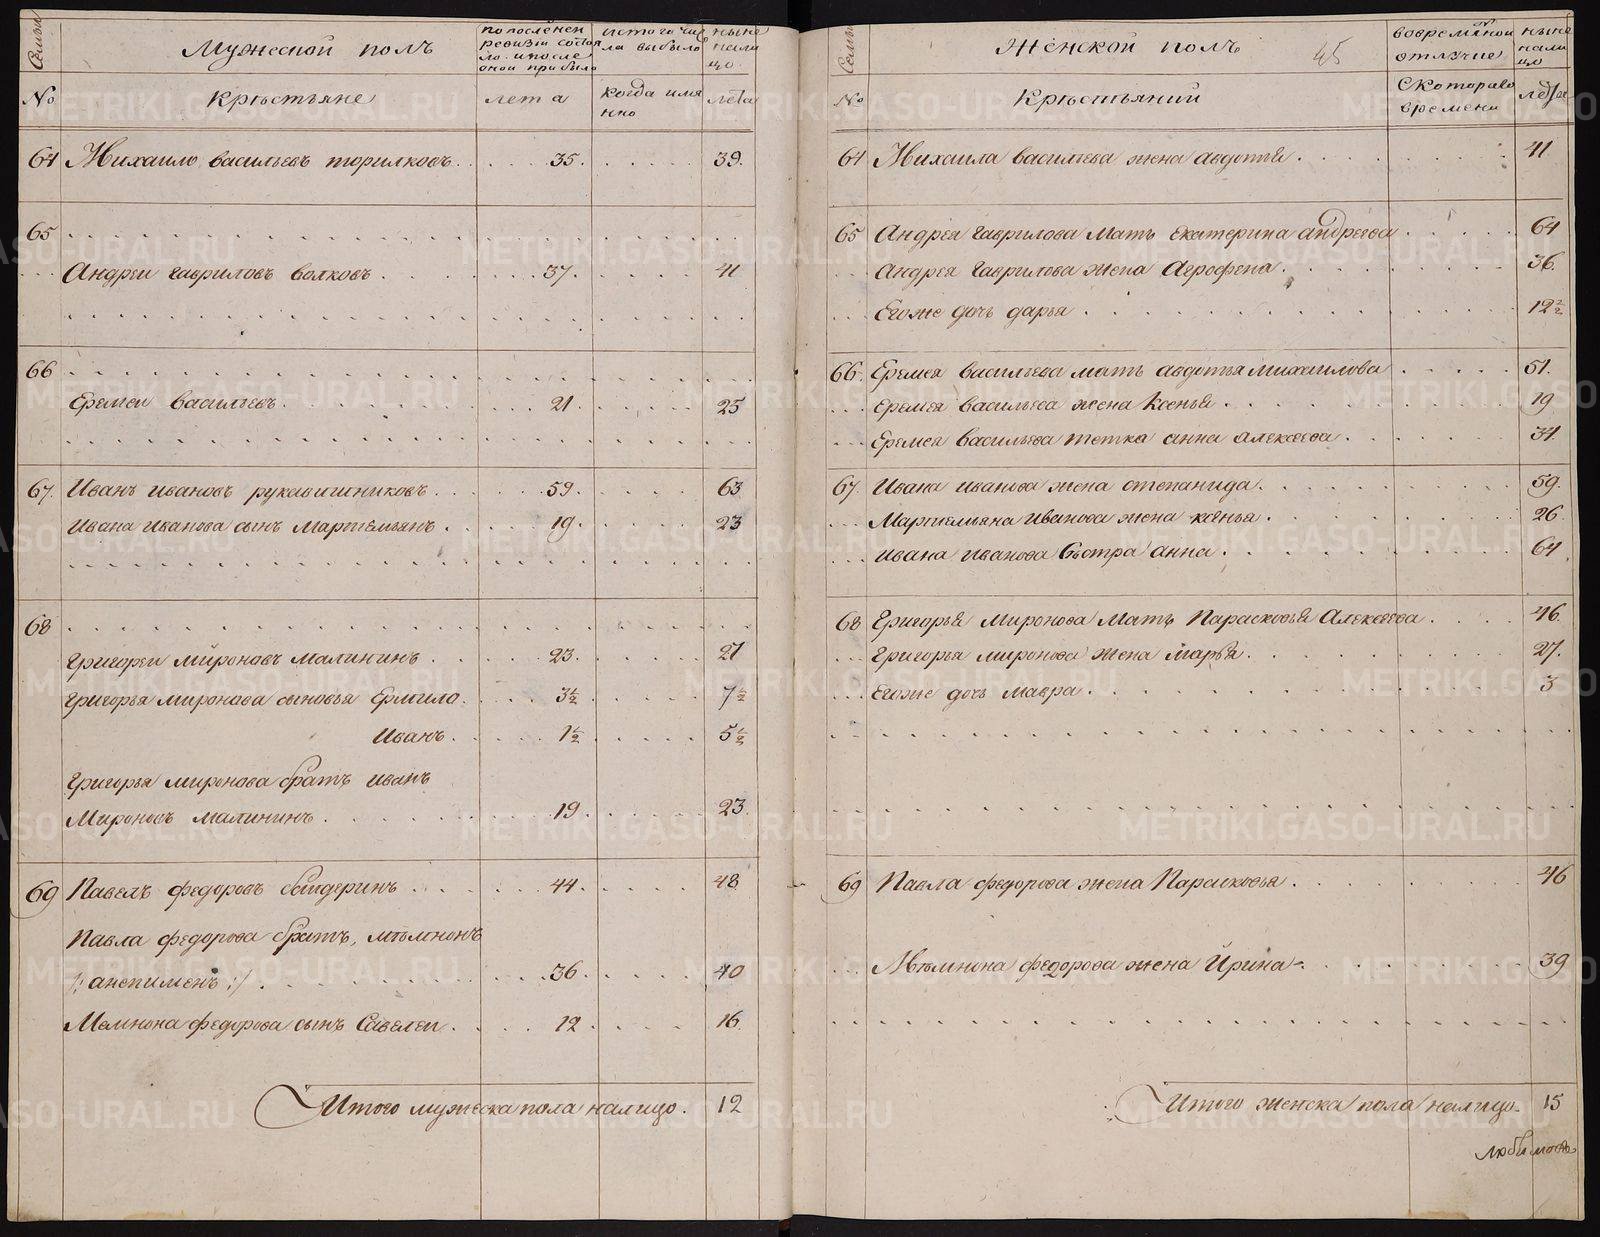 Семьи
Мужеской полъ
по последнеи ревизіи состояло и после оной прибыло
исто го числа выбыло
ныне на лицо
№
Крестьяне
лета
когда имянно
лета
64 Михаило васильевъ торилковъ 35. 39.
65
Андреи гавриловъ волковъ 37. 41
66
Еремеи васильевъ 21 25
67. Иванъ ивановъ рукавишниковъ 59. 63
Ивана Иванова сынъ Мартемьянъ 19. 23
68
Григореи мироновъ малининъ 23. 27
Григорья миронова сыновья Ермило 3½ 7½
Иванъ 1½ 5½
Григорья миронова братъ иванъ
Мироновъ малининъ 19 23
69 Павелъ федоровъ 44. 48
Павла федорова братъ, мѣмнонъ
/: :/ 36. 40
Мемнона федорова сынъ Савелеи 12. 16.
Итого мужеска пола налицо. 12
Семьи
Женской полъ
45
во временной отлучке
ныне налицо
№
Крестьянии
Скотораго времени
лета
64 Михаила васильева жена авдотья 41
65 Андрея гаврилова Мать екатерина андреева 64
Андрея гаврилова жена Агрофена 36.
Егоже дочь дарья 12½
66. Еремея васильева мать авдотья михаилова 51.
Еремея васильева жена Ксенья 19
Еремея васильева тетка анна алексеева 34.
67. Ивана иванова жена степанида 59.
Мартемьяна иванова жена ксенья 26
ивана иванова Сѣстра анна 64
68 Григорья миронова Мать Парасковья Алексеева 46.
Григорья миронова жена марья 27.
Егоже дочь мавра 3
69 Павла федорова жена Парасковья 46
Мѣмнона федорова жена Ирина 39
Итого женска пола налицо 15
METRIKI.GASO-URAL.RU